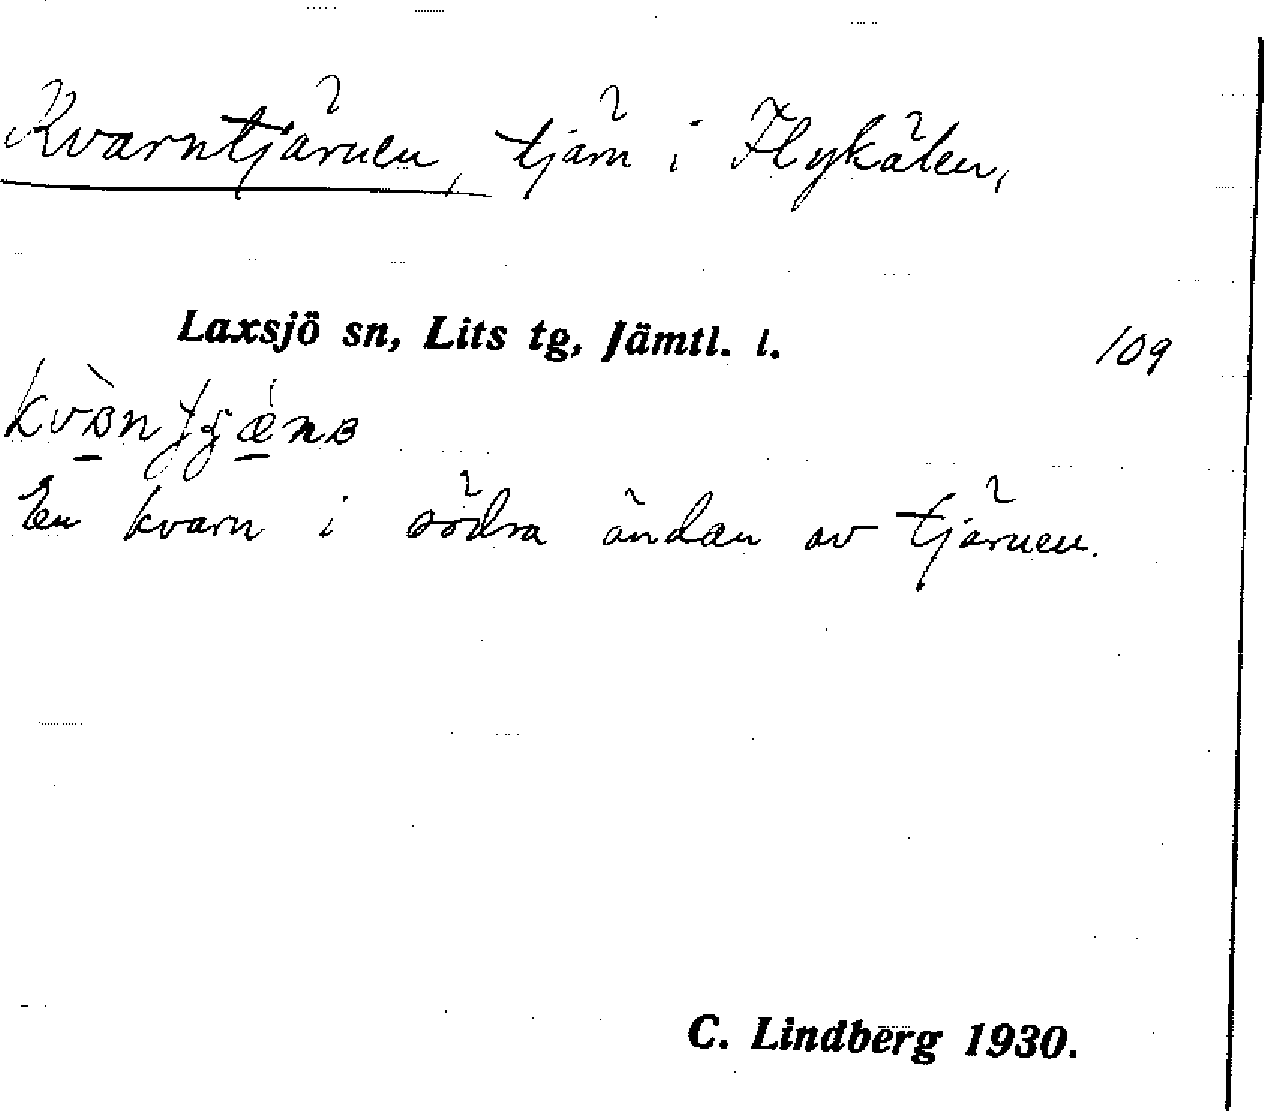 Kvarntjärnen, tjärn i Flykälen,
Laxsjö sn, Lits tg, Jämtl. l.
109
En kvarn i södra ändan av tjärnen.
C. Lindberg 1930.